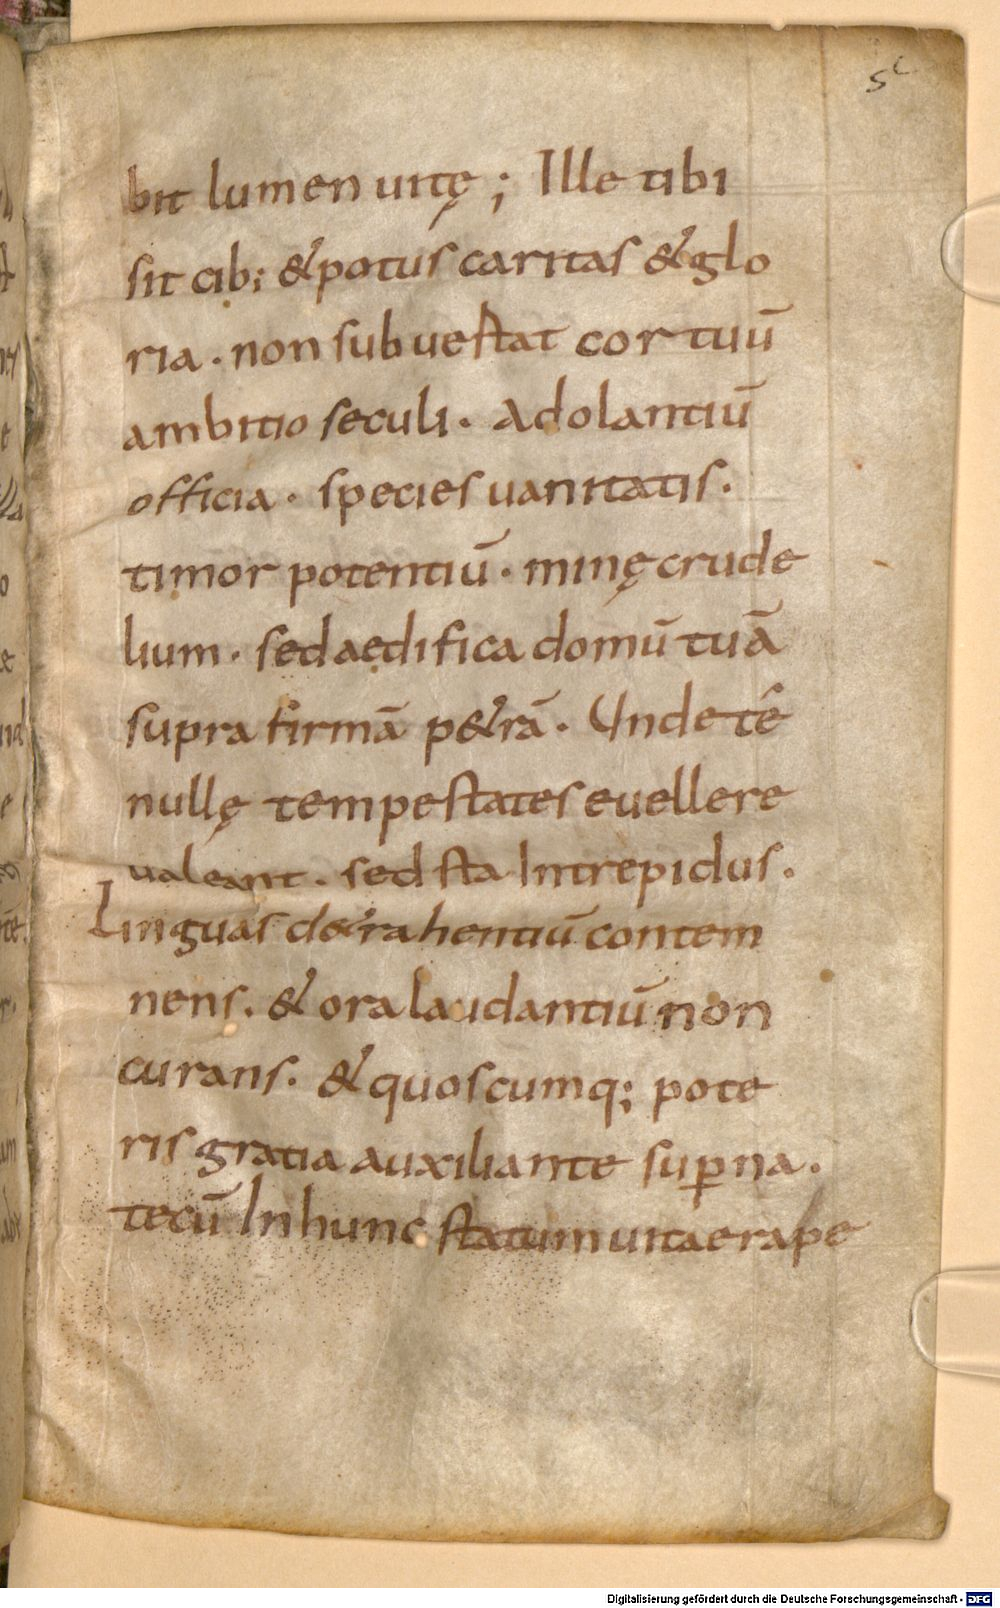 bit lumen uitę; Ille tibi
sit cib; & potus caritas & glo
ria. non subuestat cor tuū
ambitio seculi. Adolantiū
officia. species uanitatis.
timor potentiū. minę crude
lium. sed aedifica domū tuā
supra firmā p&rā. Unde tē
nullę tempestates euellere
ualeant. sed sta Intrepidus.
Linguas d&rahentiū contem
nens. & ora laudantiū non
curans. & quoscumq; pote
ris gratia auxiliante sup̄na.
tecū In hunc statum uitae rape
Digitalisierung gefördert durch die Deutsche Forschungsgemeinschaft - DFG